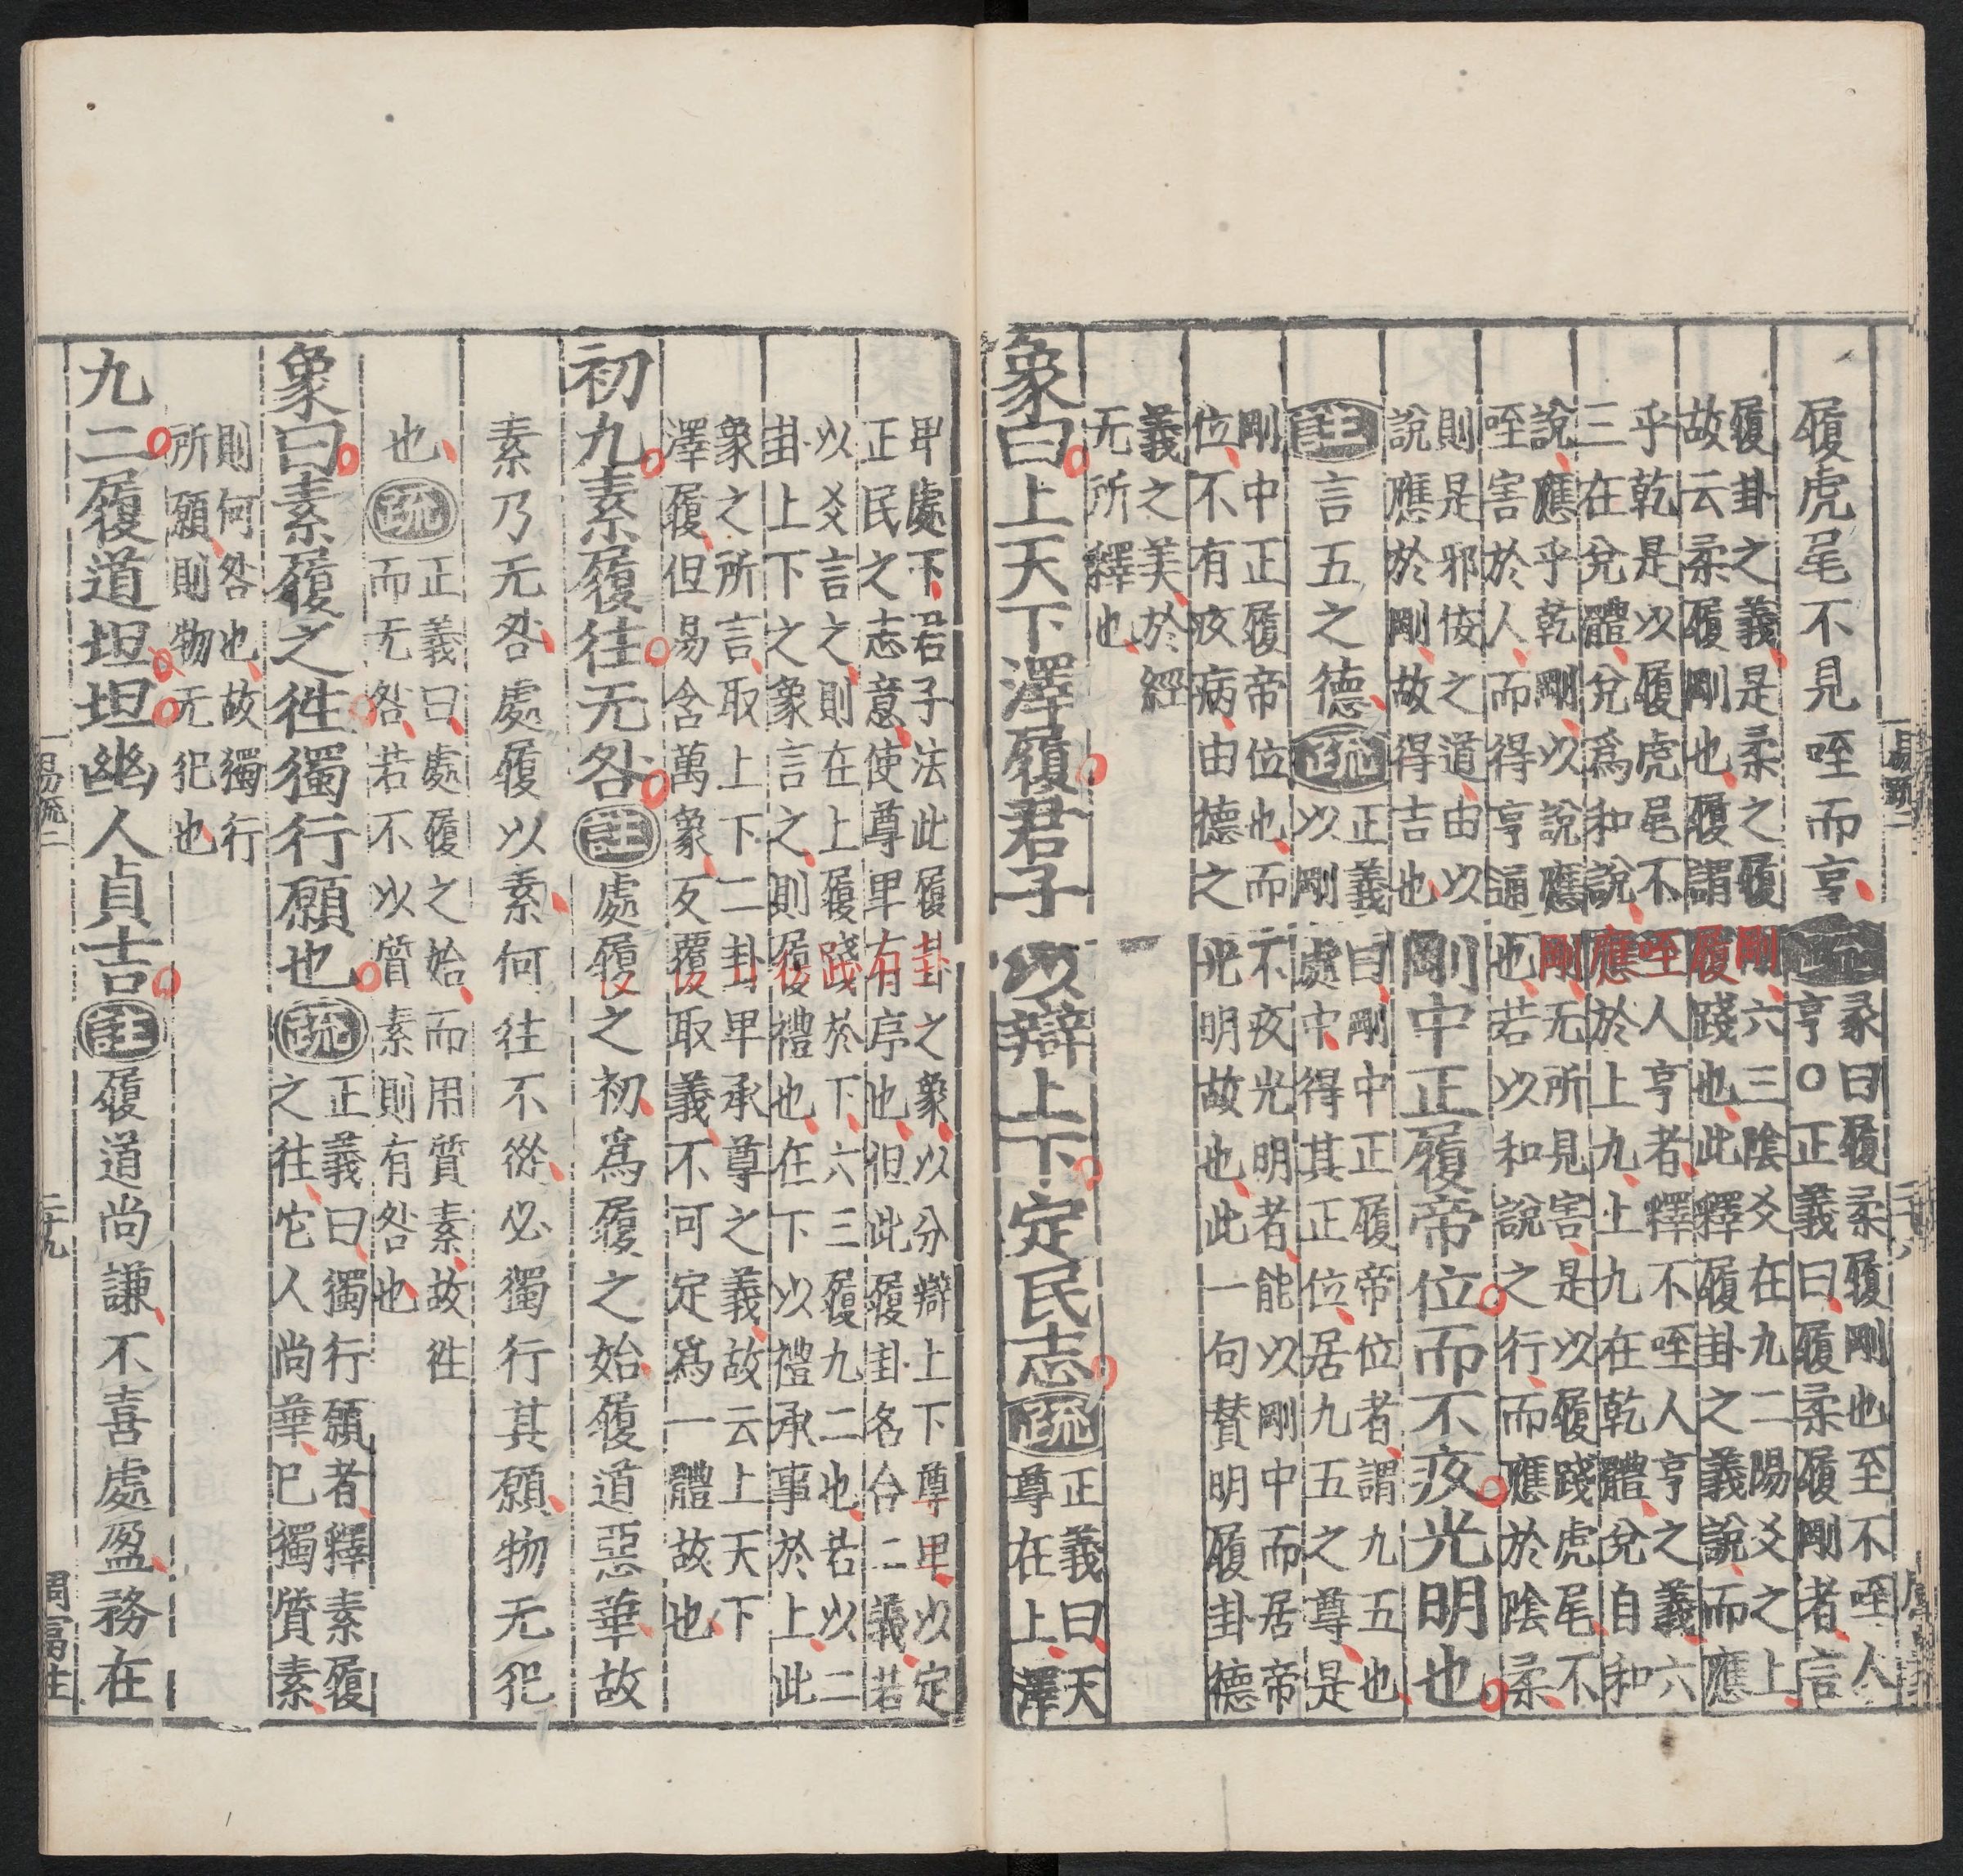 履虎尾不見咥而亨疏彖曰履柔履剛也至不咥人
亨○正義曰履柔履剛者言
履卦之義是柔之履剛六三陰爻在九二陽爻之上
故云柔履剛也履謂履踐也此釋履卦之義說而應
乎乾是以履虎尾不咥人亨者釋不咥人亨之義六
三在兌體兌爲和說應於上九上九在乾體兌自和
說應乎乾剛以說應剛无所見害是以履踐虎尾不
咥害於人而得亨通也若以和說之行而應於陰柔
則是邪佞之道由以
說應於剛故得吉也剛中正履帝位而不疚光明也
註言五之德疏正義曰剛中正履帝位者謂九五也
以剛處中得其正位居九五之尊是
剛中正履帝位也而不疚光明者能以剛中而居帝
位不有疚病由德之光明故也此一句賛明履卦德
義之美於經
无所釋也
象曰上天下澤履君子以辯上下定民志疏正義曰天
尊在上澤
卑處下君子法此履卦之象以分辯上下尊卑以定
正民之志意使尊卑有序也但此履卦名合二義若
以爻言之則在上履踐於下六三履九二也若以二
卦上下之象言之則履禮也在下以禮承事於上此
象之所言取上下二卦卑承尊之義故云上天下
澤履但易含萬象反覆取義不可定爲一體故也
初九素履往无咎註處履之初爲履之始履道惡華故
素乃无咎處履以素何往不從必獨行其願物无犯
也疏正義曰處履之始而用質素故徃
而无咎若不以質素則有咎也
象曰素履之徃獨行願也疏正義曰獨行願者釋素履
之往它人尚華己獨質素
則何咎也故獨行
所願則物无犯也
九二履道坦坦幽人貞吉註履道尚謙不喜處盈務在
易疏二
二十九